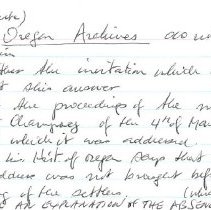 Oregon Archives do no
in
the invitation which
this answer.
the proceedings of the m
Champoeg of the 4th of Ma
which it was addressed.
in Hist of Oregon says that
address was not brought bef
of the settlers.
AN EXPLANATION OF THE ABSEN